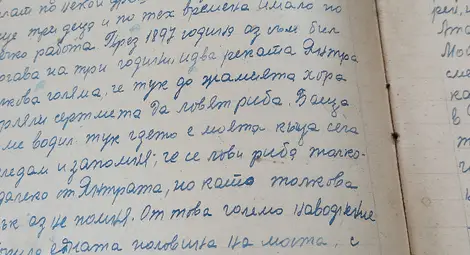 по некой
ще три деца и по тех времена имало по
ко работа. През 1897 година аз съм бил
огава на три години, идва реката Янтра
лкова голяма, че тук до джамията хора
рляли серкмета да ловят риба. Баща
ме водил тук гдето е моята къща сега
гледам и запомня, че се лови риба толко-
далеко от Янтрата, но като толкова
ък аз не помня. От това големо наводнение
едната половина на моста, с
Мо
ка
в